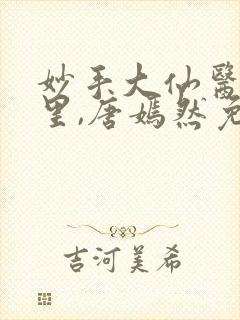 妙手大仙醫
里,唐嫣然免
吉河美希